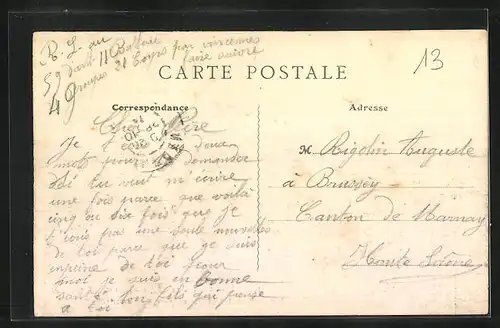 R. L. au
59 d'art 11 Batterie
4 Groupes 21 Corps par vincennes
faire suivre
13
CARTE POSTALE
Correspondance
Adresse
Cher Père
Je t'écris deux
mots pour te demander
si tu veux m'écrire
une fois parce que voilà
cinq ou dix fois que je
t'écris pas une seule nouvelles
de toi parce que je suis
en peine de toi pour
moi je suis en bonne
santé ton fils qui pense
a toi
M Rigolin Auguste
à Brussey
Canton de Marnay
Haute Saône